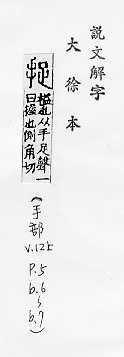 說文解字
大徐本
捉
搤也从手足聲一
曰握也側角切
(手部
V.12上
P.5
b.6
b.7)